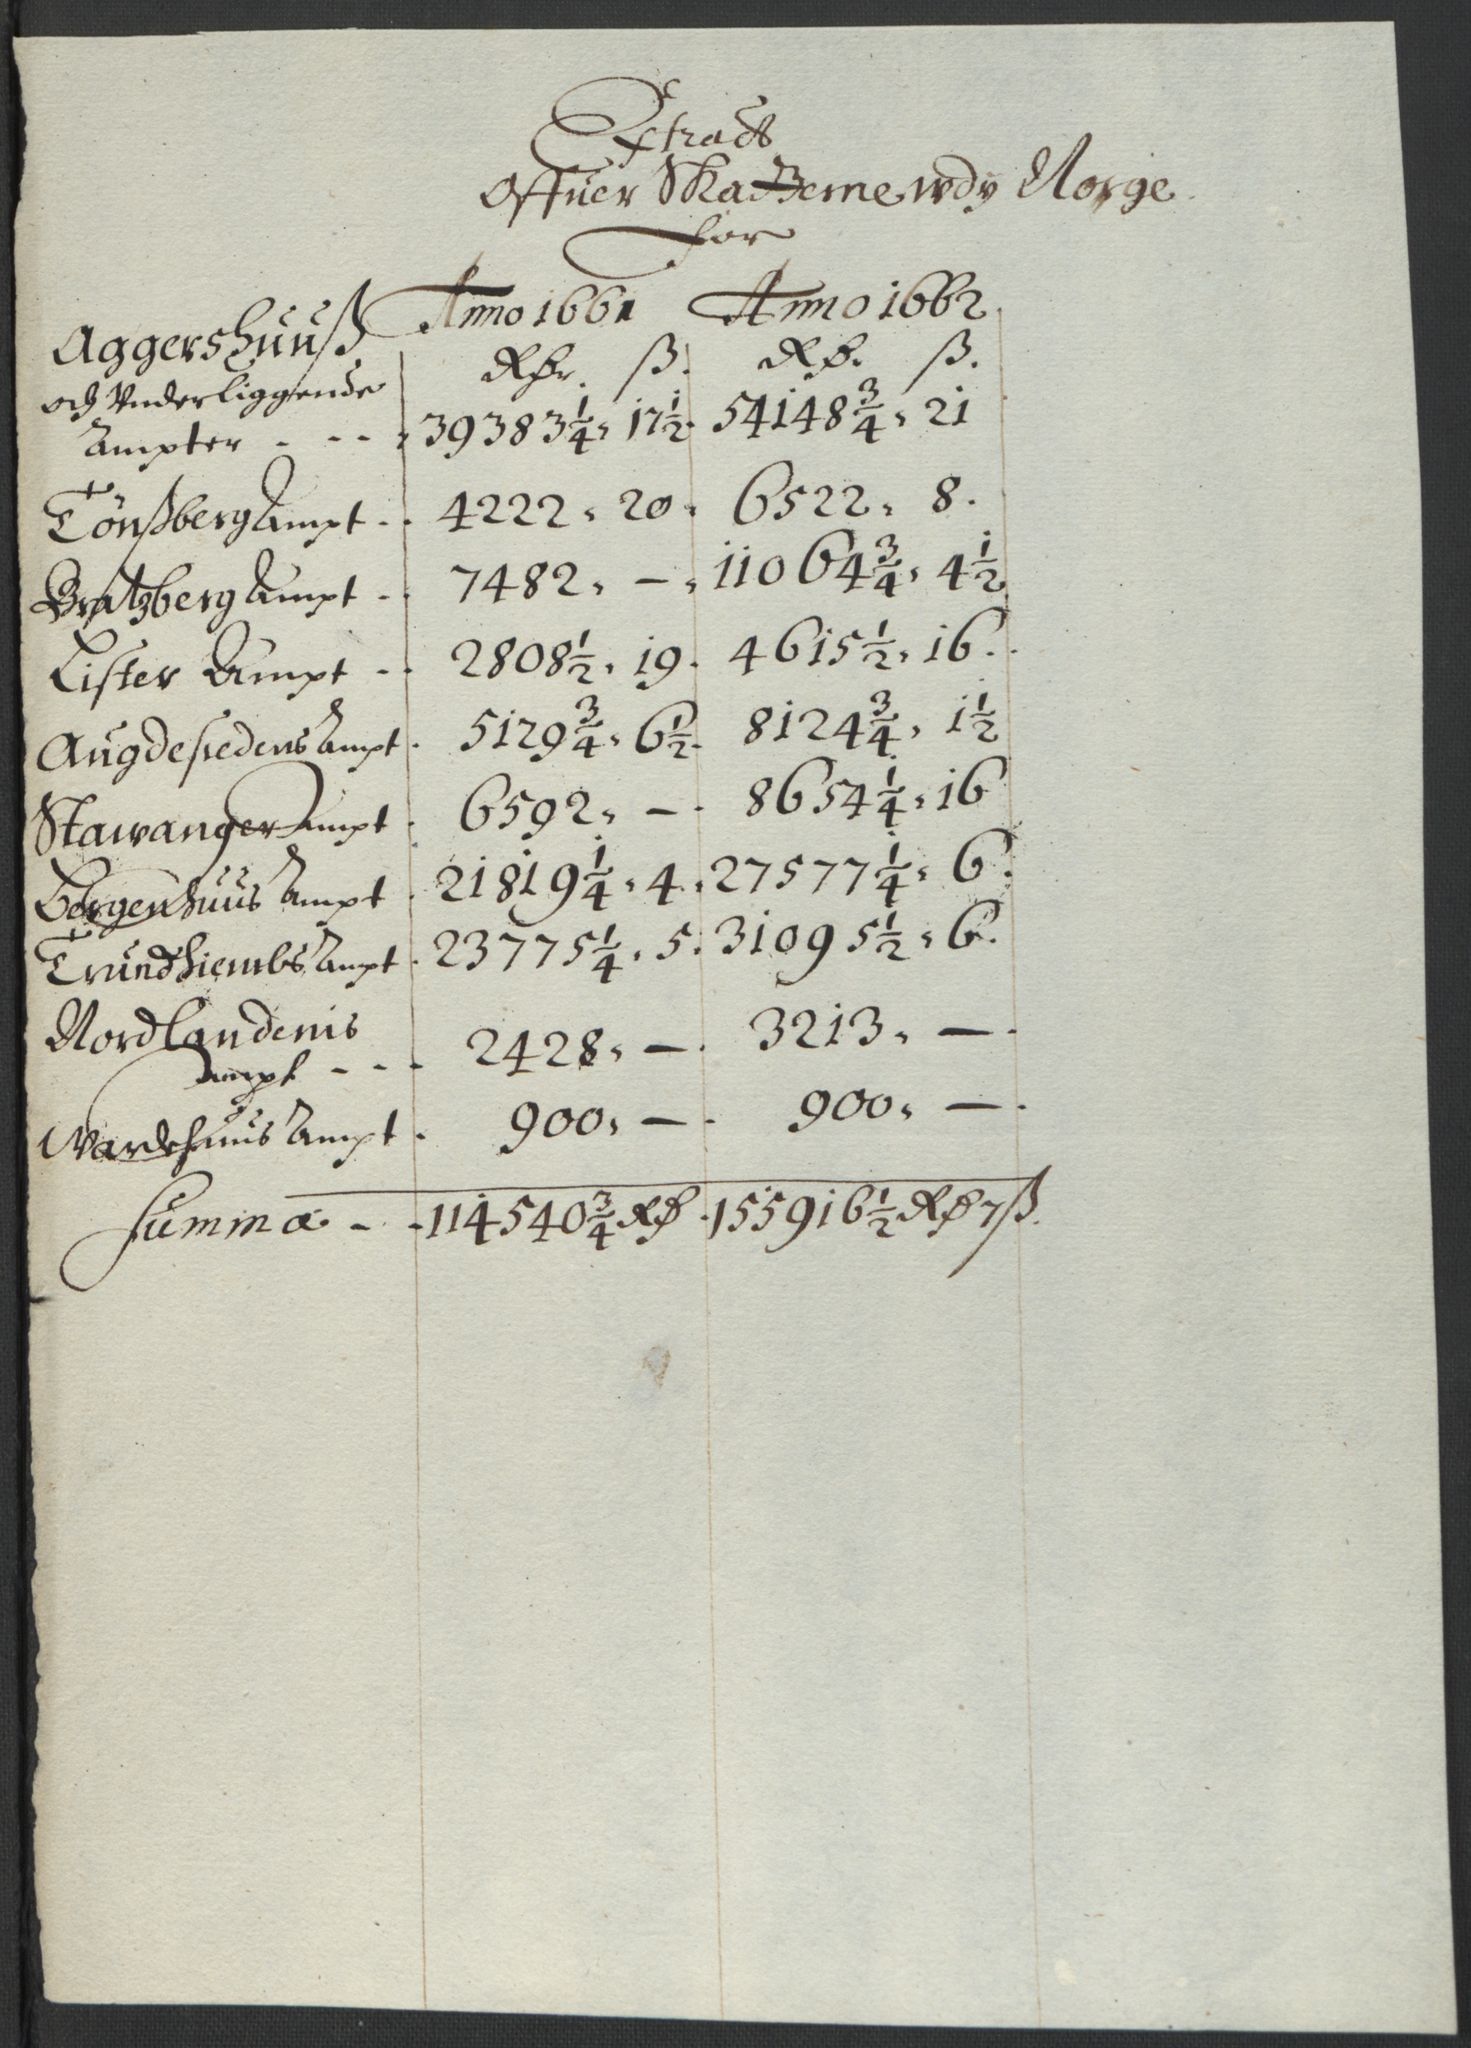 Extract
Offuer Skatterne wdy Norge
for
Anno 1661 Anno 1662
Aggershuuß Rdr. ß. Rd. ß.
och Underliggende
Ampter - - - 39383 1/4, 17 1/2. 54148 3/4, 21
Tönßberg Ampt - - 4222, 20, 6522, 8.
Bratzberg Ampt - - 7482, —, 11064 3/4, 4 1/2
Lister Ampt - - 2808 1/2, 19. 4615 1/2, 16.
Augdesiedens Ampt. 5129 3/4, 6 1/2. 8124 3/4, 1 1/2
Stawanger Ampt. 6592, —. 8654 1/4, 16
Bergenhuus Ampt. 21819 1/4, 4. 27577 1/4, 6.
Trundhiembs Ampt. 23775 1/4, 5. 31095 1/2, 6.
Nordlandenis
Ampt - - - 2428, —. 3213, —.
Wardehuus Ampt. 900, —. 900, —.
Summa - - 114540 3/4 Rd. 155916 1/2 Rd 7 ß.